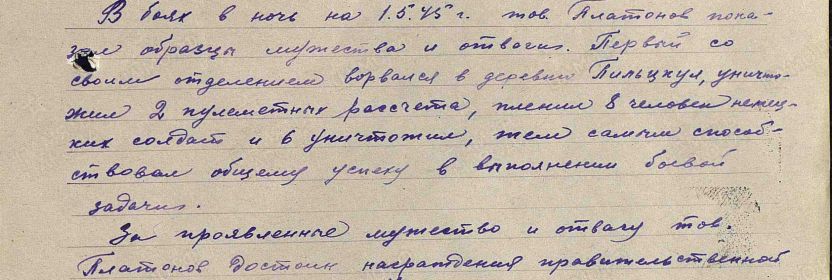 В боях в ночь на 1.5.45 г. тов. Платонов пока-
зал образцы мужества и отваги. Первый со
своим отделением ворвался в деревни Пильцхул, уничто-
жил 2 пулеметных рассчета, пленил 8 человек немец-
ких солдат и 6 уничтожил, тем самым способ-
ствовал общему успеху в выполнении боевой
задачи.
За проявленные мужество и отвагу тов.
Платонов достоин награждения правительственной